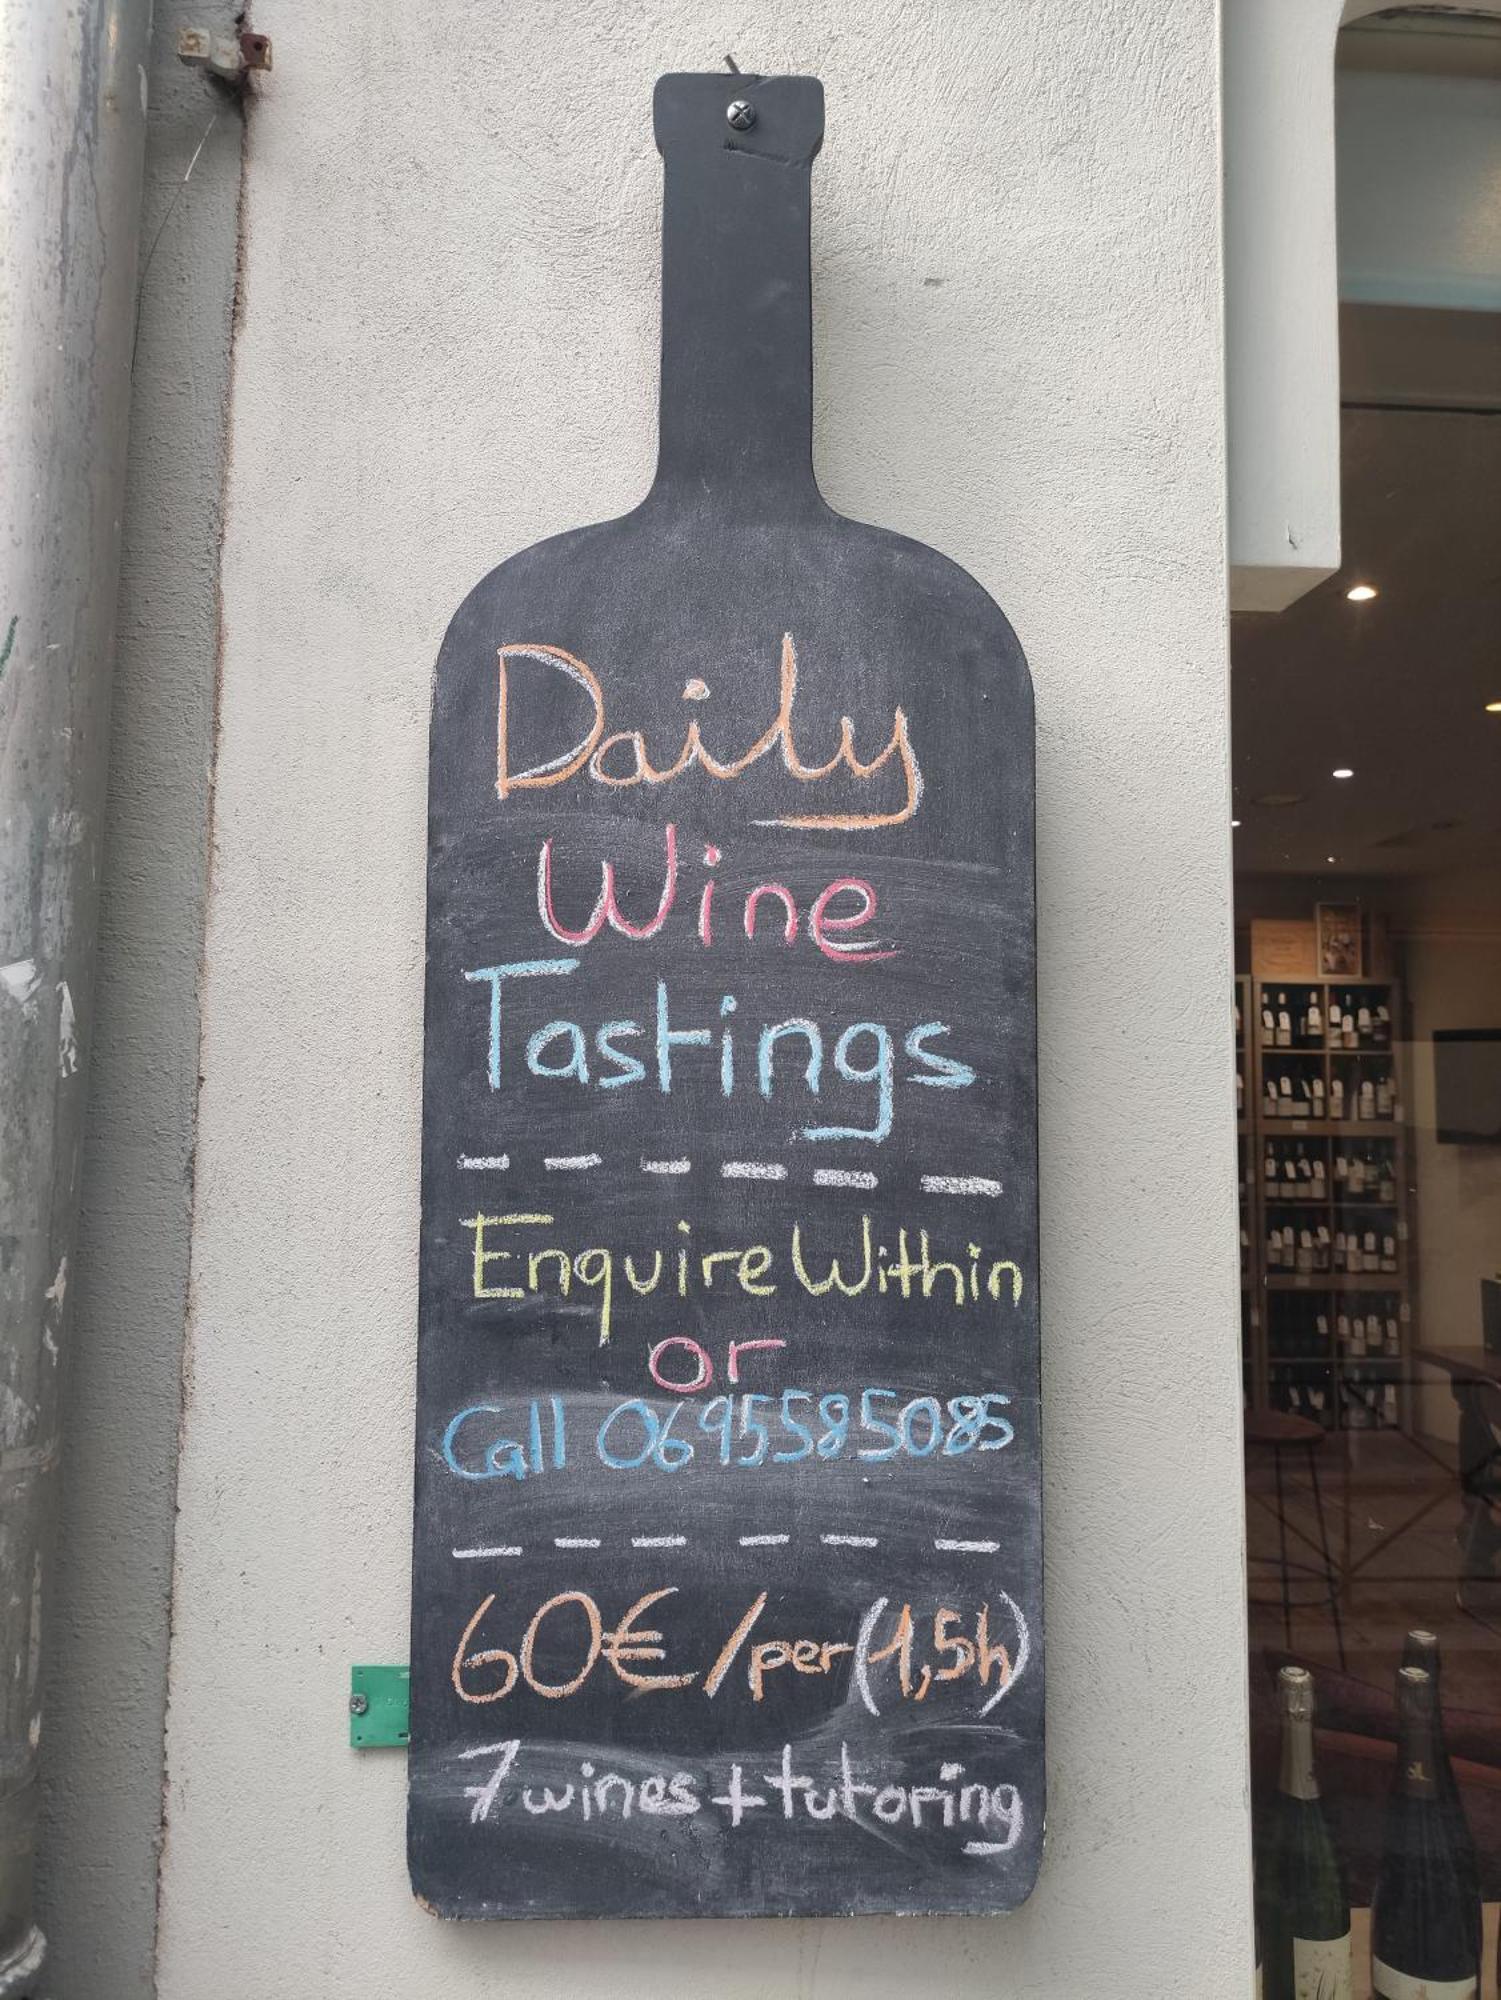 Daily
Wine
Tastings
Enquire Within
or
Call 0695585085
60€/per(1,5h)
7 wines + tutoring